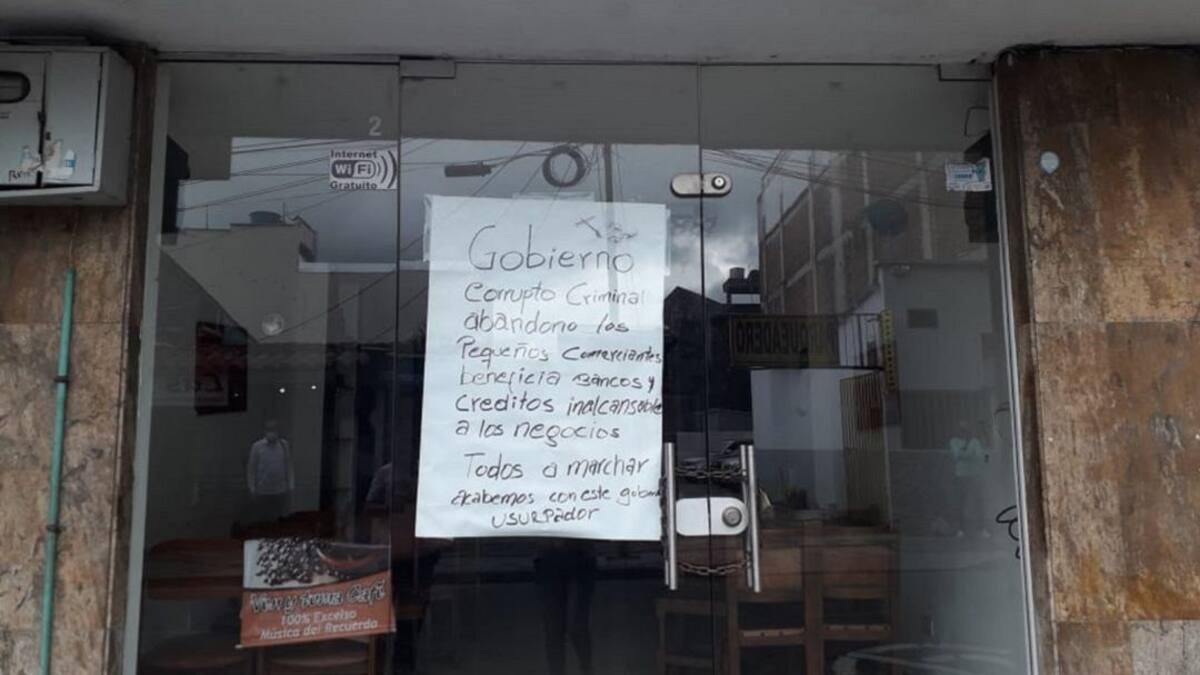 2
Internet
WiFi
Gratuito
Gobierno
Corrupto Criminal
abandono los
Pequeños Comerciantes
beneficia Bancos y
Creditos inalcansable
a los negocios
Todos a marchar
akabemos con este
USURPador
Ven y toma Café
100% Excelso
Música del Recuerdo